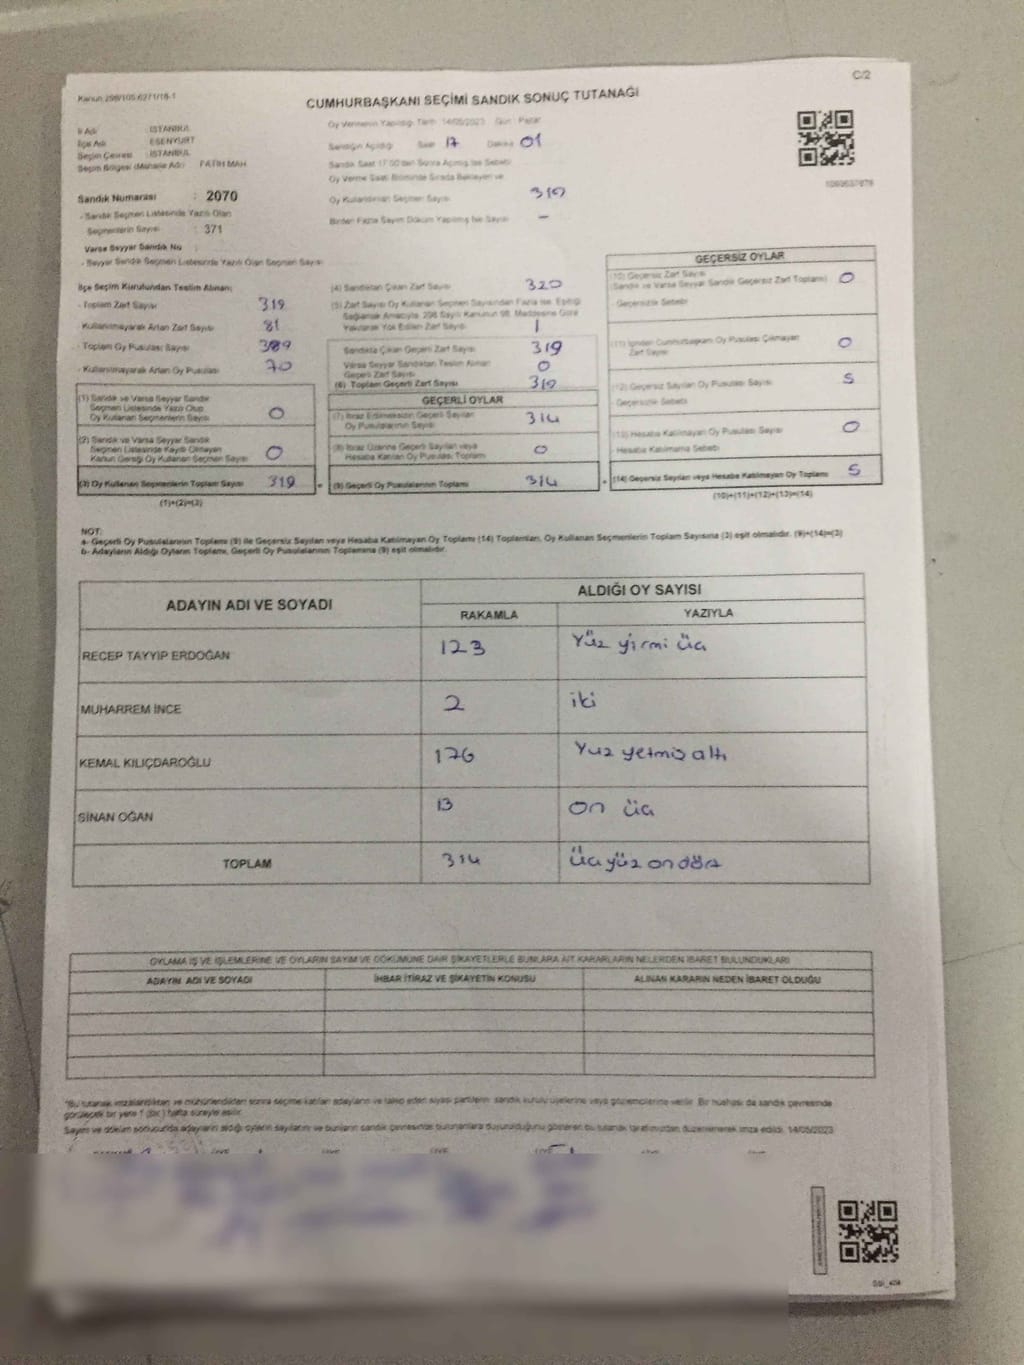 C/2
Kanun 298/105.6271/18-1
CUMHURBAŞKANI SEÇİMİ SANDIK SONUÇ TUTANAĞI
İl Adı : İSTANBUL
İlçe Adı : ESENYURT
Seçim Çevresi : İSTANBUL
Seçim Bölgesi (Mahalle Adı) : FATİH MAH.
Oy Vermenin Yapıldığı Tarih: 14/05/2023 Gün : Pazar
Sandığın Açıldığı Saat 17 Dakika 01
Sandık Saat 17:00'den Sonra Açılmış İse Sebebi
Oy Verme Saati Bitiminde Sırada Bekleyen ve
Oy Kullandırılan Seçmen Sayısı 319
Birden Fazla Sayım Döküm Yapılmış İse Sayısı –
Sandık Numarası : 2070
- Sandık Seçmen Listesinde Yazılı Olan
Seçmenlerin Sayısı : 371
Varsa Seyyar Sandık No :
- Seyyar Sandık Seçmen Listesinde Yazılı Olan Seçmen Sayısı
İlçe Seçim Kurulundan Teslim Alınan:
- Toplam Zarf Sayısı 319
- Kullanılmayarak Artan Zarf Sayısı 81
- Toplam Oy Pusulası Sayısı
- Kullanılmayarak Artan Oy Pusulası 70
(1) Sandık ve Varsa Seyyar Sandık
Seçmen Listesinde Yazılı Olup
Oy Kullanan Seçmenlerin Sayısı 0
(2) Sandık ve Varsa Seyyar Sandık
Seçmen Listesinde Kayıtlı Olmayan
Kanun Gereği Oy Kullanan Seçmen Sayısı 0
(3) Oy Kullanan Seçmenlerin Toplam Sayısı 319
(1)+(2)=(3)
(4) Sandıktan Çıkan Zarf Sayısı 320
(5) Zarf Sayısı Oy Kullanan Seçmen Sayısından Fazla İse, Eşitliği
Sağlamak Amacıyla, 298 Sayılı Kanunun 98. Maddesine Göre
Yakılarak Yok Edilen Zarf Sayısı 1
Sandıkta Çıkan Geçerli Zarf Sayısı 319
Varsa Seyyar Sandıktan Teslim Alınan
Geçerli Zarf Sayısı 0
(6) Toplam Geçerli Zarf Sayısı 319
GEÇERLİ OYLAR
(7) İtiraz Edilmeksizin Geçerli Sayılan
Oy Pusulalarının Sayısı 314
(8) İtiraz Üzerine Geçerli Sayılan veya
Hesaba Katılan Oy Pusulası Toplamı 0
(9) Geçerli Oy Pusulalarının Toplamı 314
GEÇERSİZ OYLAR
(10) Geçersiz Zarf Sayısı
(Sandık ve Varsa Seyyar Sandık Geçersiz Zarf Toplamı) 0
Geçersizlik Sebebi
(11) İçinden Cumhurbaşkanı Oy Pusulası Çıkmayan
Zarf Sayısı 0
(12) Geçersiz Sayılan Oy Pusulası Sayısı 5
- Geçersizlik Sebebi
(13) Hesaba Katılmayan Oy Pusulası Sayısı 0
Hesaba Katılmama Sebebi
(14) Geçersiz Sayılan veya Hesaba Katılmayan Oy Toplamı 5
(10)+(11)+(12)+(13)=(14)
NOT:
a- Geçerli Oy Pusulalarının Toplamı (9) ile Geçersiz Sayılan veya Hesaba Katılmayan Oy Toplamı (14) Toplamları, Oy Kullanan Seçmenlerin Toplam Sayısına (3) eşit olmalıdır. (9)+(14)=(3)
b- Adayların Aldığı Oyların Toplamı, Geçerli Oy Pusulalarının Toplamına (9) eşit olmalıdır.
ADAYIN ADI VE SOYADI
ALDIĞI OY SAYISI
RAKAMLA YAZIYLA
RECEP TAYYİP ERDOĞAN 123 Yüz yirmi üç
MUHARREM İNCE 2 iki
KEMAL KILIÇDAROĞLU 176 Yüz yetmiş altı
SİNAN OĞAN 13 on üç
TOPLAM 314 Üç yüz on dört
OYLAMA İŞ VE İŞLEMLERİNE VE OYLARIN SAYIM VE DÖKÜMÜNE DAİR ŞİKAYETLERLE BUNLARA AİT KARARLARIN NELERDEN İBARET BULUNDUKLARI
ADAYIN ADI VE SOYADI İHBAR İTİRAZ VE ŞİKAYETİN KONUSU ALINAN KARARIN NEDEN İBARET OLDUĞU
*Bu tutanak imzalandıktan ve mühürlendikten sonra seçime katılan adayların ve talep eden siyasi partilerin sandık kurulu üyelerine veya gözlemcilerine verilir. Bir nüshası da sandık çevresinde
görülecek bir yere 1 (bir) hafta süreyle asılır.
Sayım ve döküm sonucunda adayların aldığı oyların sayılarını ve bunların sandık çevresinde bulunanlara duyurulduğunu gösteren bu tutanak tarafımızdan düzenlenerek imza edildi. 14/05/2023